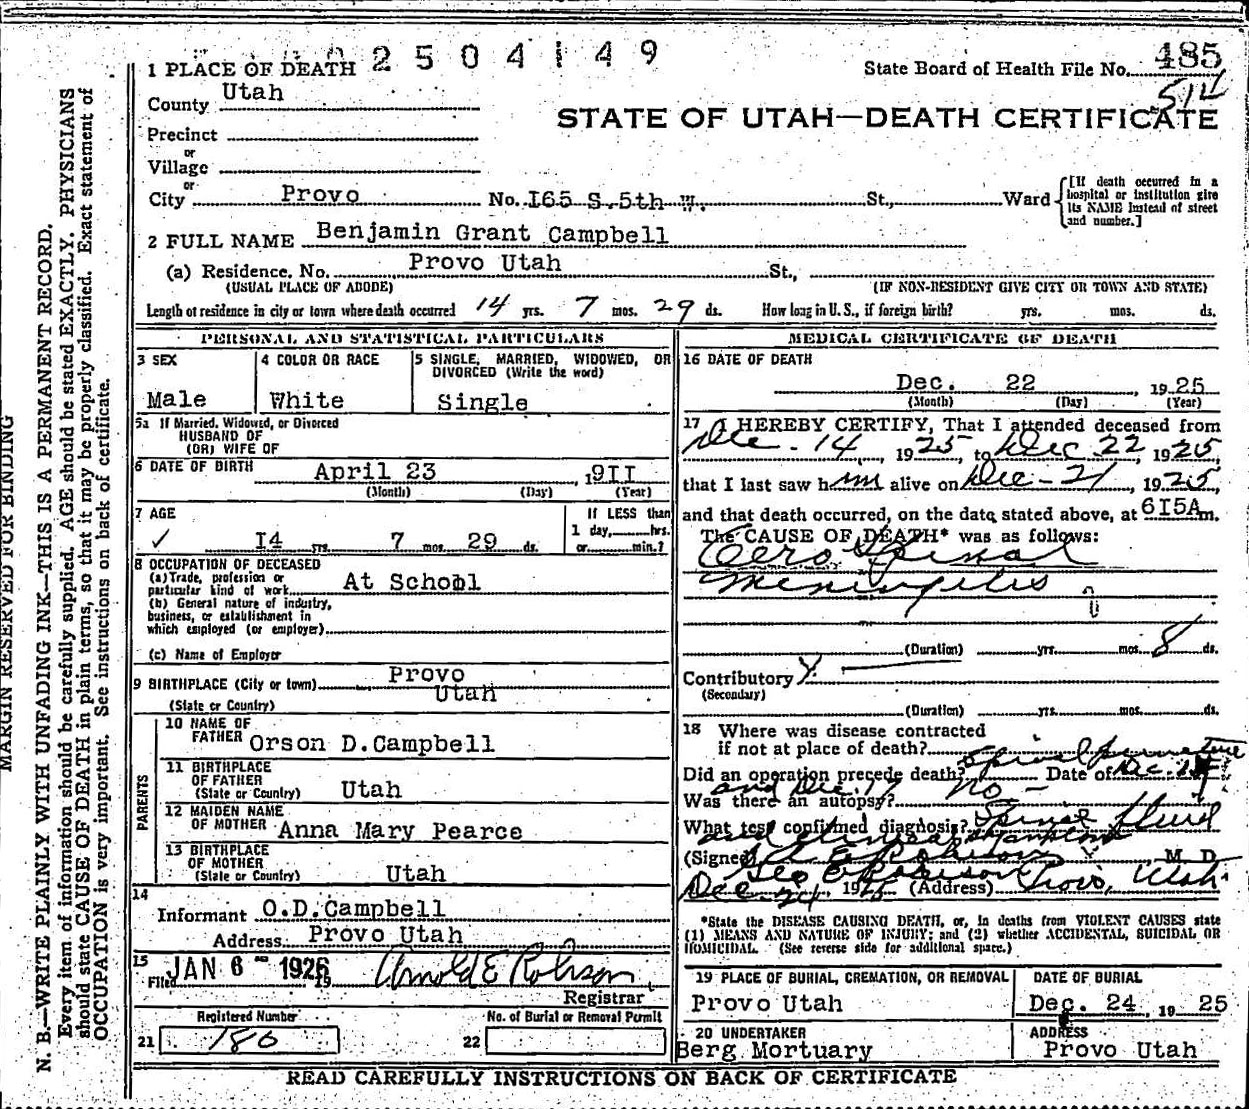 2504149
1 PLACE OF DEATH
State Board of Health File No. 485
514
County Utah
STATE OF UTAH—DEATH CERTIFICATE
Precinct
or
Village
or
City Provo No. I65 S.5th W. St., Ward
[If death occurred in a hospital or institution give its NAME instead of street and number.]
2 FULL NAME Benjamin Grant Campbell
(a) Residence. No. Provo Utah St.,
(USUAL PLACE OF ABODE) (IF NON-RESIDENT GIVE CITY OR TOWN AND STATE)
Length of residence in city or town where death occurred 14 yrs. 7 mos. 29 ds. How long in U. S., if foreign birth? yrs. mos. ds.
PERSONAL AND STATISTICAL PARTICULARS
3 SEX
Male
4 COLOR OR RACE
White
5 SINGLE, MARRIED, WIDOWED, OR
DIVORCED (Write the word)
Single
5a If Married, Widowed, or Divorced
HUSBAND OF
(OR) WIFE OF
6 DATE OF BIRTH April 23, 19II
(Month) (Day) (Year)
7 AGE
✓ I4 yrs. 7 mos. 29 ds.
If LESS than
1 day, hrs.
or min.?
8 OCCUPATION OF DECEASED
(a) Trade, profession or
particular kind of work At School
(b) General nature of industry,
business, or establishment in
which employed (or employer)
(c) Name of Employer
9 BIRTHPLACE (City or town) Provo
Utah
(State or Country)
PARENTS
10 NAME OF
FATHER Orson D.Campbell
11 BIRTHPLACE
OF FATHER
(State or Country) Utah
12 MAIDEN NAME
OF MOTHER Anna Mary Pearce
13 BIRTHPLACE
OF MOTHER
(State or Country) Utah
14
Informant O.D.Campbell
Address Provo Utah
15
Filed JAN 6 - 1926 19 Arnold E Robison
Registrar
Registered Number
21 180
No. of Burial or Removal Permit
22
MEDICAL CERTIFICATE OF DEATH
16 DATE OF DEATH
Dec. 22, 1925
(Month) (Day) (Year)
17 I HEREBY CERTIFY, That I attended deceased from
Dec. 14, 1925, to Dec 22, 1925,
that I last saw him alive on Dec - 21, 1925,
and that death occurred, on the date stated above, at 6I5A m.
The CAUSE OF DEATH* was as follows:
Cero Spinal
Meningitis
(Duration) yrs. mos. 8 ds.
Contributory
(Secondary)
(Duration) yrs. mos. ds.
18 Where was disease contracted
if not at place of death?
Did an operation precede death? Spinal puncture Date of Dec 14
and Dec. 17
Was there an autopsy? no -
What test confirmed diagnosis? Spinal fluid
and clinical symptoms
(Signed) M. D.
Geo E Robison
Dec. 24, 1925 (Address) Provo, Utah.
*State the DISEASE CAUSING DEATH, or, in deaths from VIOLENT CAUSES state
(1) MEANS AND NATURE OF INJURY; and (2) whether ACCIDENTAL, SUICIDAL OR
HOMICIDAL. (See reverse side for additional space.)
19 PLACE OF BURIAL, CREMATION, OR REMOVAL
Provo Utah
DATE OF BURIAL
Dec. 24, 19 25
20 UNDERTAKER
Berg Mortuary
ADDRESS
Provo Utah
READ CAREFULLY INSTRUCTIONS ON BACK OF CERTIFICATE
MARGIN RESERVED FOR BINDING
N. B.—WRITE PLAINLY WITH UNFADING INK—THIS IS A PERMANENT RECORD.
Every item of information should be carefully supplied. AGE should be stated EXACTLY. PHYSICIANS
should state CAUSE OF DEATH in plain terms, so that it may be properly classified. Exact statement of
OCCUPATION is very important. See instructions on back of certificate.